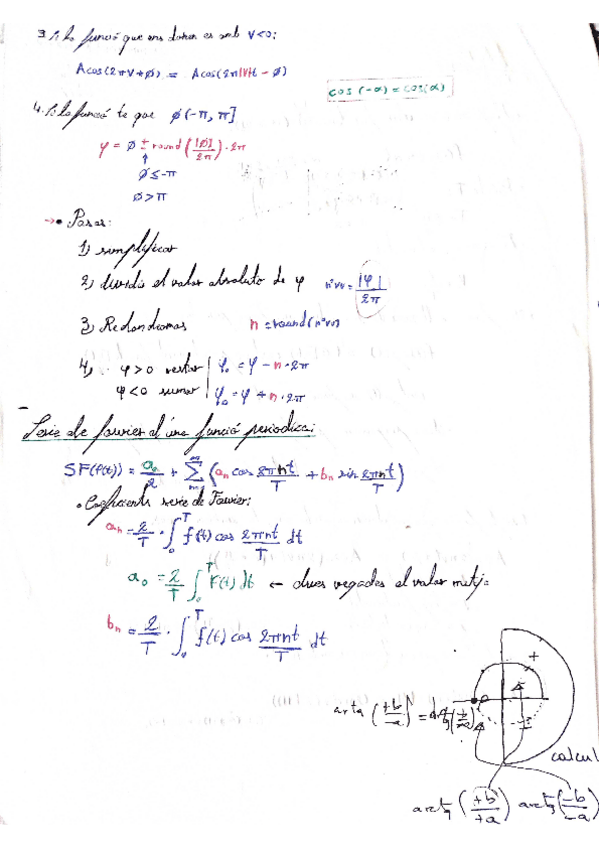 3. Si la funció que ens donen es amb V<0:
Acos(2πV+Ø) = Acos(2π|V|t - Ø)
cos (-α) = cos(α)
4. Si la funció te que Ø(-π, π]
φ = Ø ± round (|Ø|/2π) · 2π
↑
Ø ≤ -π
Ø > π
→ • Pasos:
1) simplificar
2) dividir el valor absoluto de φ nºvv = |φ|/2π
3) Redondeamos n = round(nºvv)
4) φ>0 restar | φ₀ = φ - n · 2π
φ<0 sumar | φ₀ = φ + n · 2π
Serie de fourier d'una funció periodica:
SF(f(t)) = a₀/2 + Σ (aₙ cos 2πnt/T + bₙ sin 2πnt/T)
• Coeficients serie de Fourier:
aₙ = 2/T · ∫₀ᵀ f(t) cos 2πnt/T dt
a₀ = 2/T ∫₀ᵀ f(t) dt ← dues vegades el valor mitjà
bₙ = 2/T · ∫₀ᵀ f(t) cos 2πnt/T dt
+
arctg (+b/-a) =
calcul
arctg (+b/+a) arctg (-b/-a)